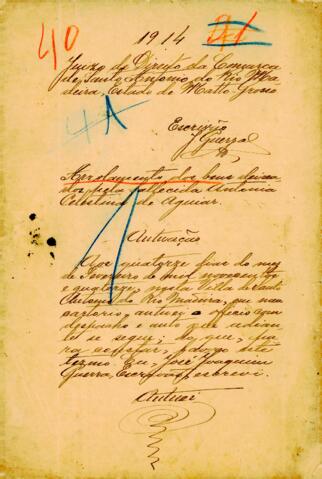 40
1914
Juizo de Direito da Comarca
de Santo Antonio do Rio Ma-
deira, Estado de Matto-Grosso
4A
Escrivão
J Guerra
Arrolamento dos bens deixa-
dos pela fallecida Antonia
Celestina de Aguiar.
Autuação
Aos quatorze dias do mez
de Fevereiro de mil novecentos
e quatorze, nesta Villa de Santo
Antonio do Rio Madeira, em meu
cartorio, autuei o officio com
despacho e auto que adian-
te se segue; do que, pa-
ra constar, lavro este
termo. Eu, José Joaquim
Guerra, Escrivão, escrevi.
Autuei